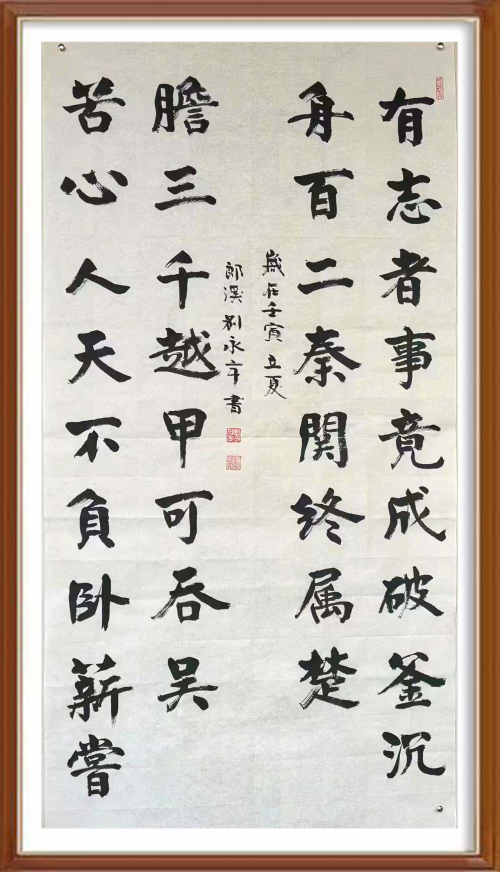 有志者事竟成破釜沉
舟百二秦関終属楚
苦心人天不負卧薪嘗
膽三千越甲可吞吴
歲在壬寅立夏
郎溪刘永年書